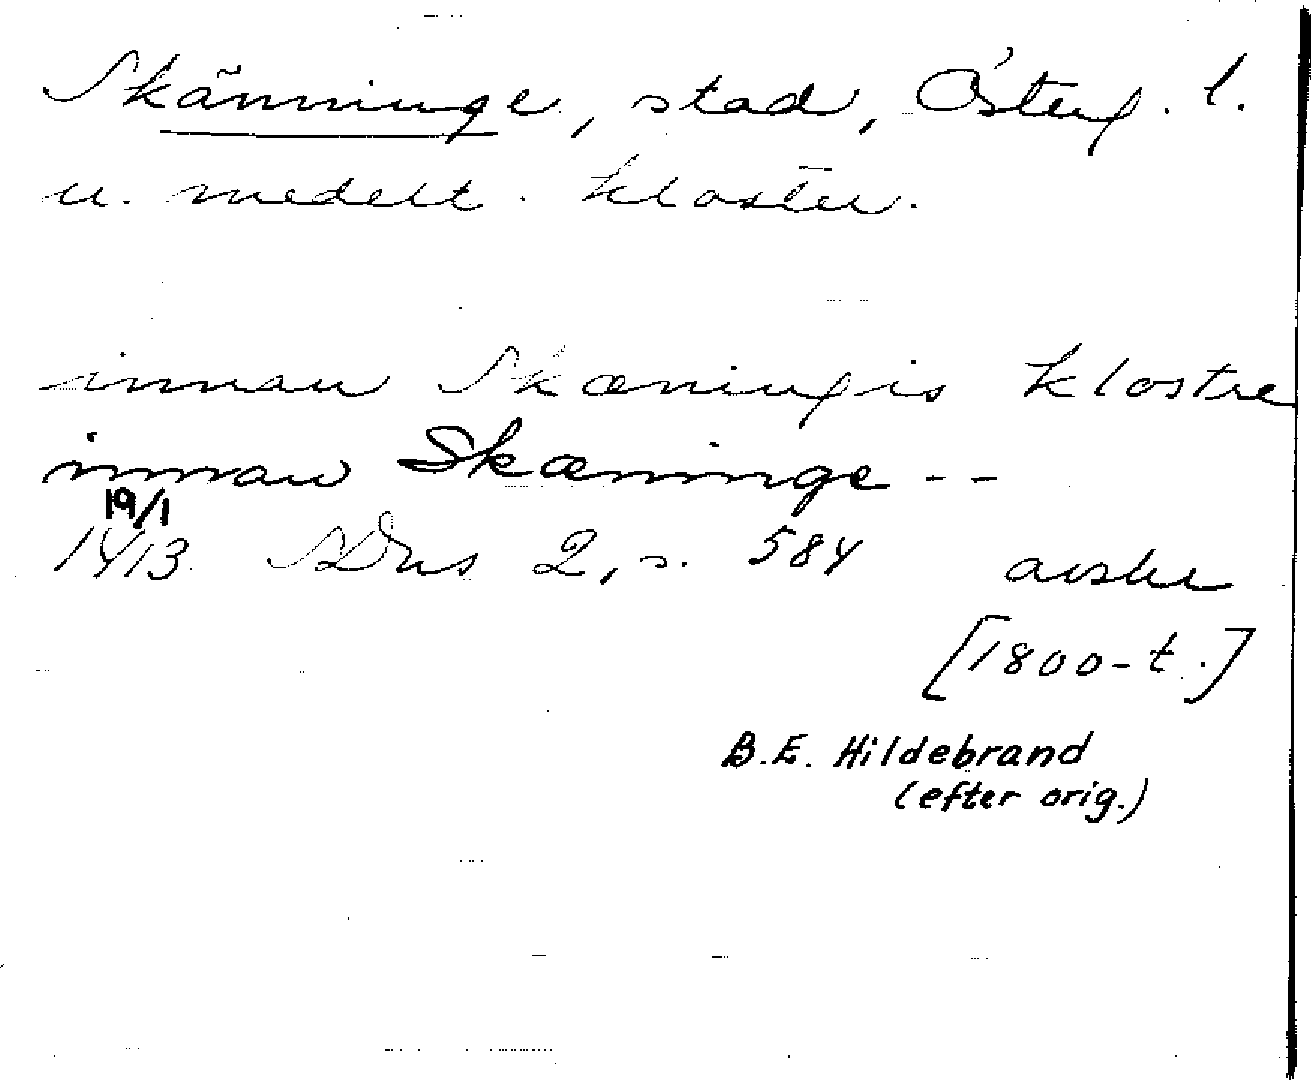 Skänninge, stad, Österg. l.
u. medelt. kloster.
innan Skæningis klostre
innan Skæninge --
19/1
1413 SDns 2, s. 584 avskr
[1800-t.]
B.E. Hildebrand
(efter orig.)